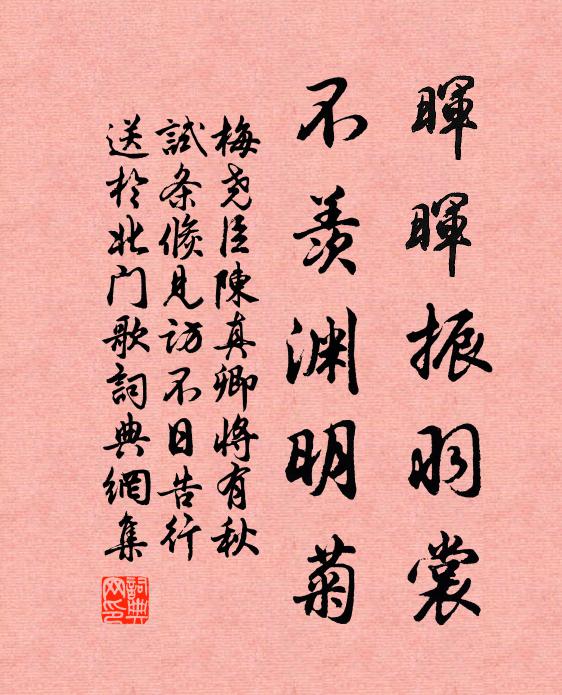 暉暉振羽裳
不羨渊明菊
梅尧臣陳真卿將有秋
試条倏見访不日告行
送於北门歌詞典網集
詞典网印